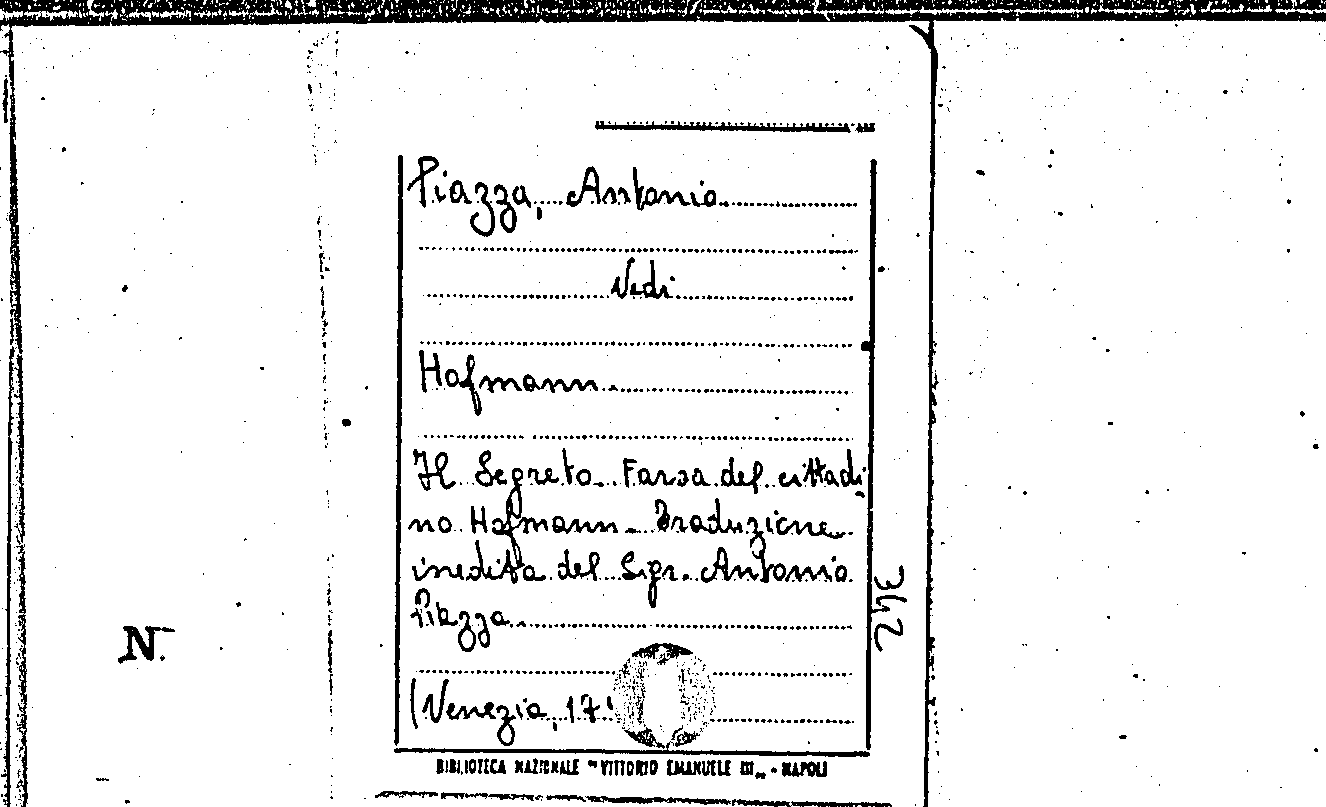 Piazza, Antonio
Vedi
Hofmann
Il Segreto. Farsa del cittadi
no Hofmann. Traduzione
inedita del Sigr. Antonio
Piazza.
(Venezia, 17
342
N.
BIBLIOTECA NAZIONALE "VITTORIO EMANUELE III„ - NAPOLI